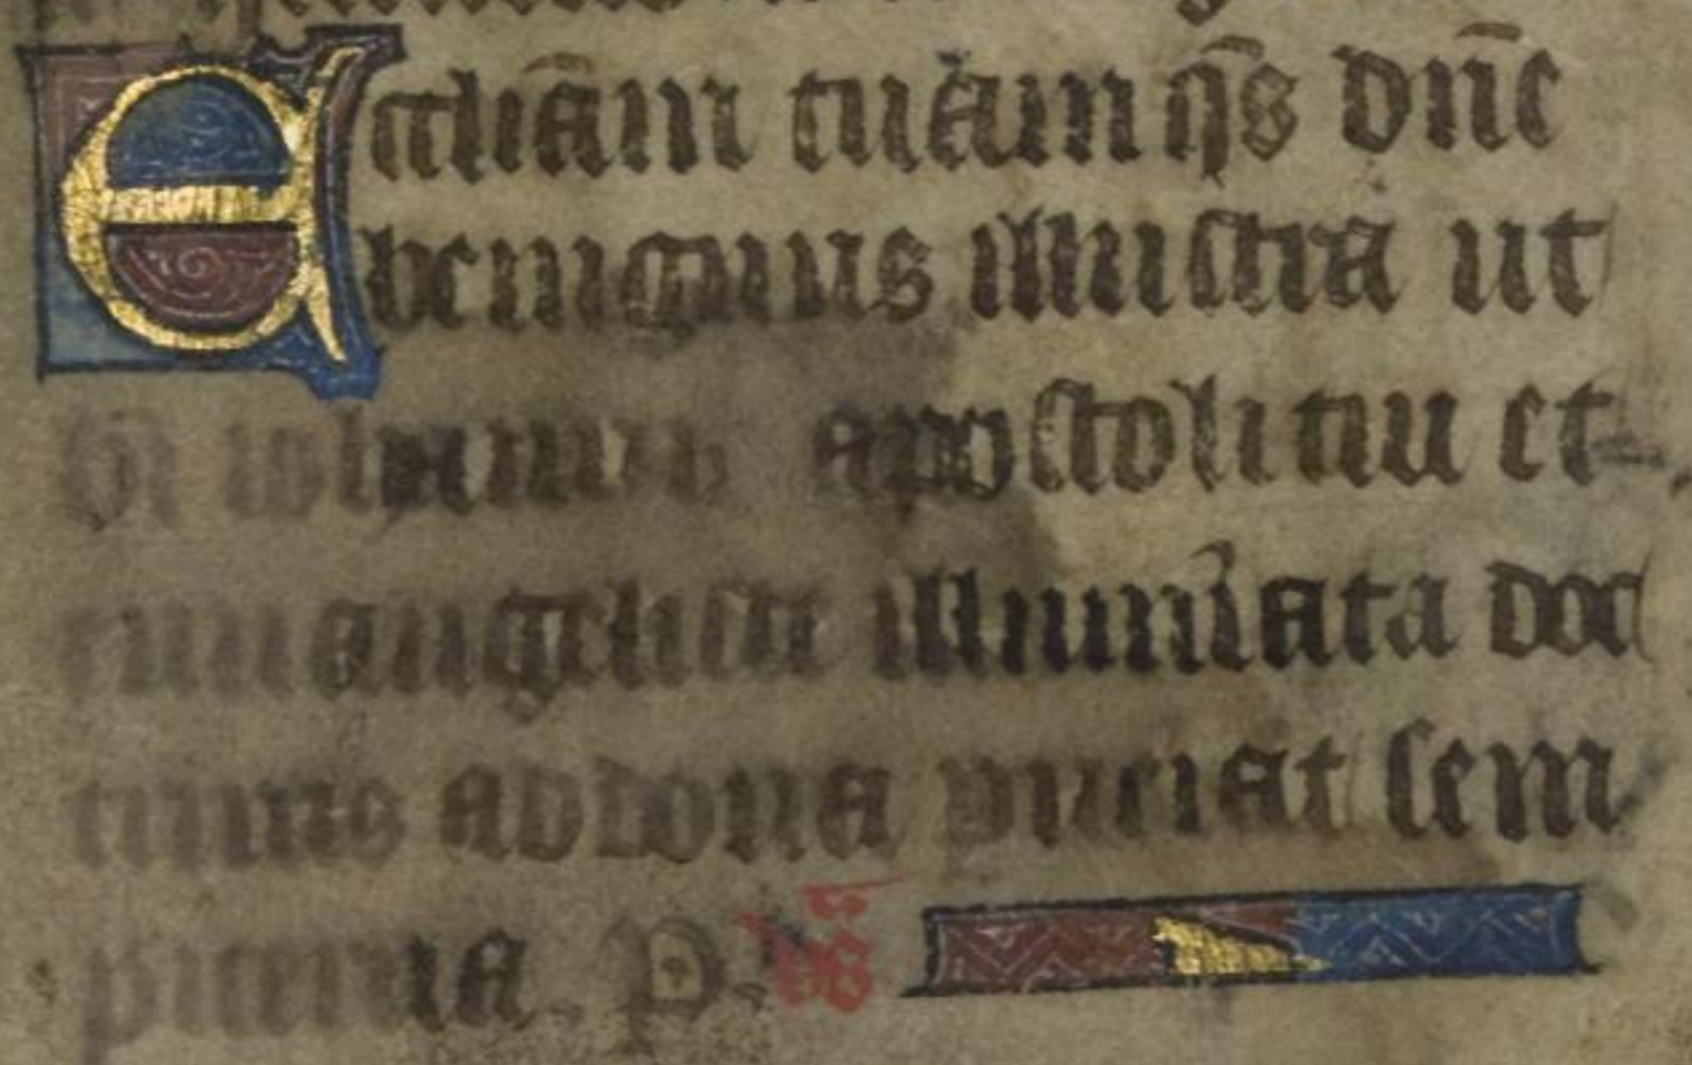 Ecc̄liam tuam q̄s dn̄e
benignus illustra ut
bi iohannis apostoli tui et
euuangeliste illumīata doc
trinis ad dona ꝑueniat sem
piterna. P.